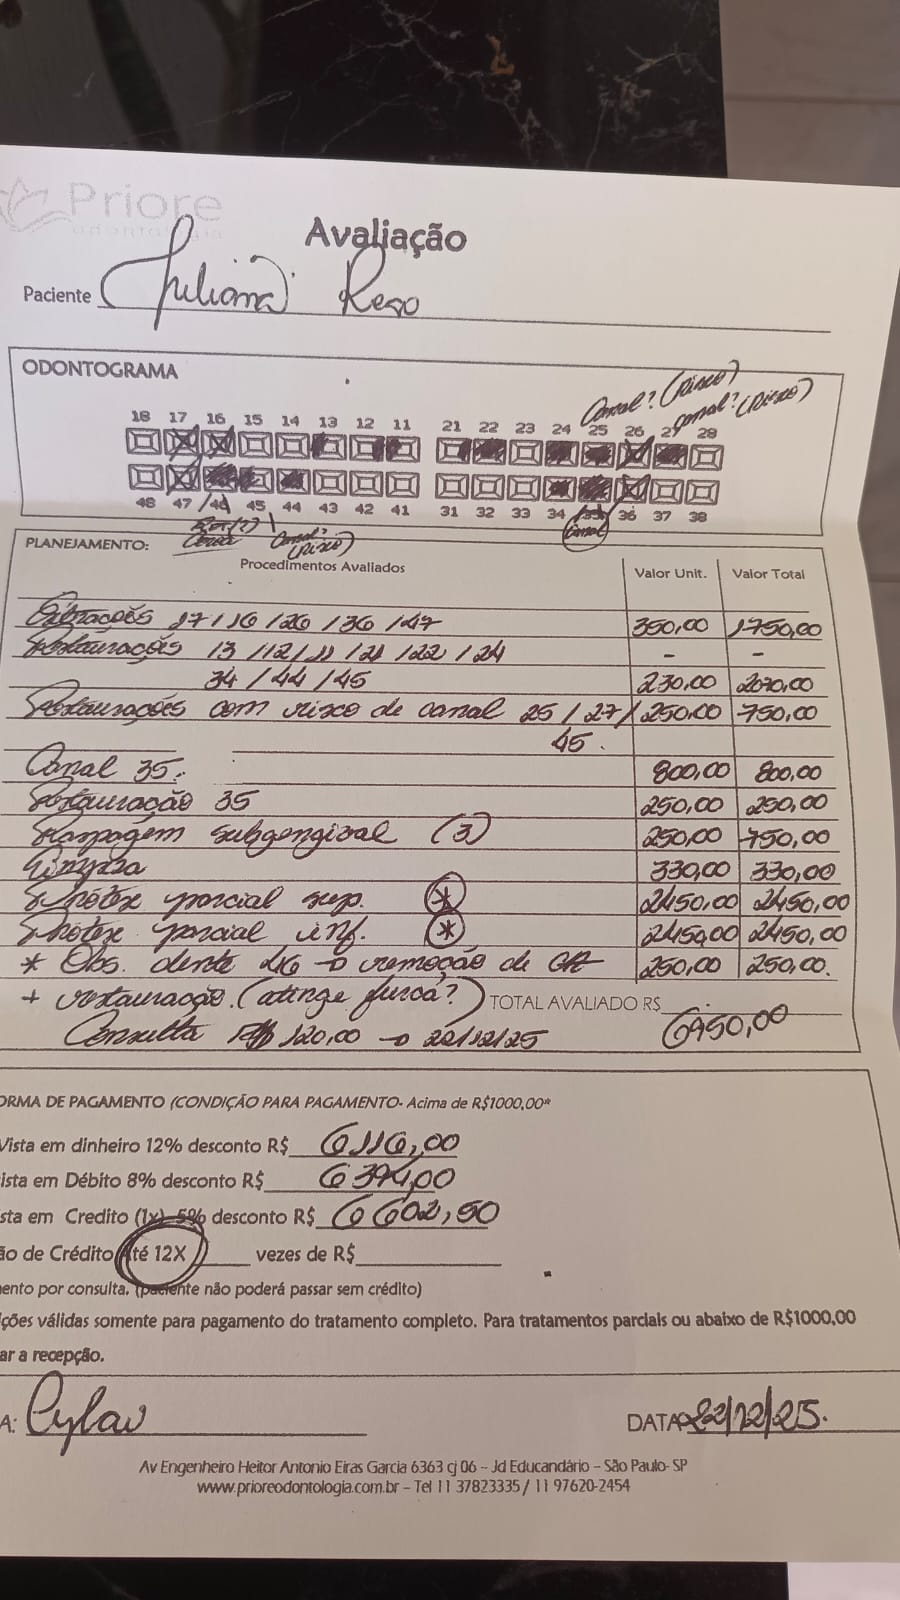 Priore
odontologia
Avaliação
Paciente Juliana Rego
ODONTOGRAMA
Canal? (Risco)
Canal? (Risco)
18 17 16 15 14 13 12 11 21 22 23 24 25 26 27 28
48 47 46 45 44 43 42 41 31 32 33 34 35 36 37 38
Canal? (Risco)
Canal
PLANEJAMENTO:
Procedimentos Avaliados Valor Unit. Valor Total
Extrações 17/16/26/36/47 350,00 1750,00
Restaurações 13/12/11/21/22/24 - -
34/44/45 230,00 2070,00
Restaurações com risco de canal 25/27/ 250,00 750,00
45.
Canal 35. 800,00 800,00
Restauração 35 250,00 250,00
Raspagem subgengival (3) 250,00 750,00
Limpeza 330,00 330,00
Prótese parcial sup. * 2450,00 2450,00
Prótese parcial inf. * 2450,00 2450,00
* Obs. dente 46 → remoção de 250,00 250,00.
+ restauração. (atinge furca?) TOTAL AVALIADO R$ 6950,00
Consulta 120,00 → 22/12/25
ORMA DE PAGAMENTO (CONDIÇÃO PARA PAGAMENTO- Acima de R$1000,00*
Vista em dinheiro 12% desconto R$ 6116,00
ista em Débito 8% desconto R$ 6394,00
sta em Credito (1x) 5% desconto R$ 6602,50
ão de Crédito Até 12X vezes de R$
ento por consulta. (paciente não poderá passar sem crédito)
ções válidas somente para pagamento do tratamento completo. Para tratamentos parciais ou abaixo de R$1000,00
ar a recepção.
A: DATA 22/12/25.
Av Engenheiro Heitor Antonio Eiras Garcia 6363 cj 06 – Jd Educandário – São Paulo- SP
www.prioreodontologia.com.br – Tel 11 37823335 / 11 97620-2454